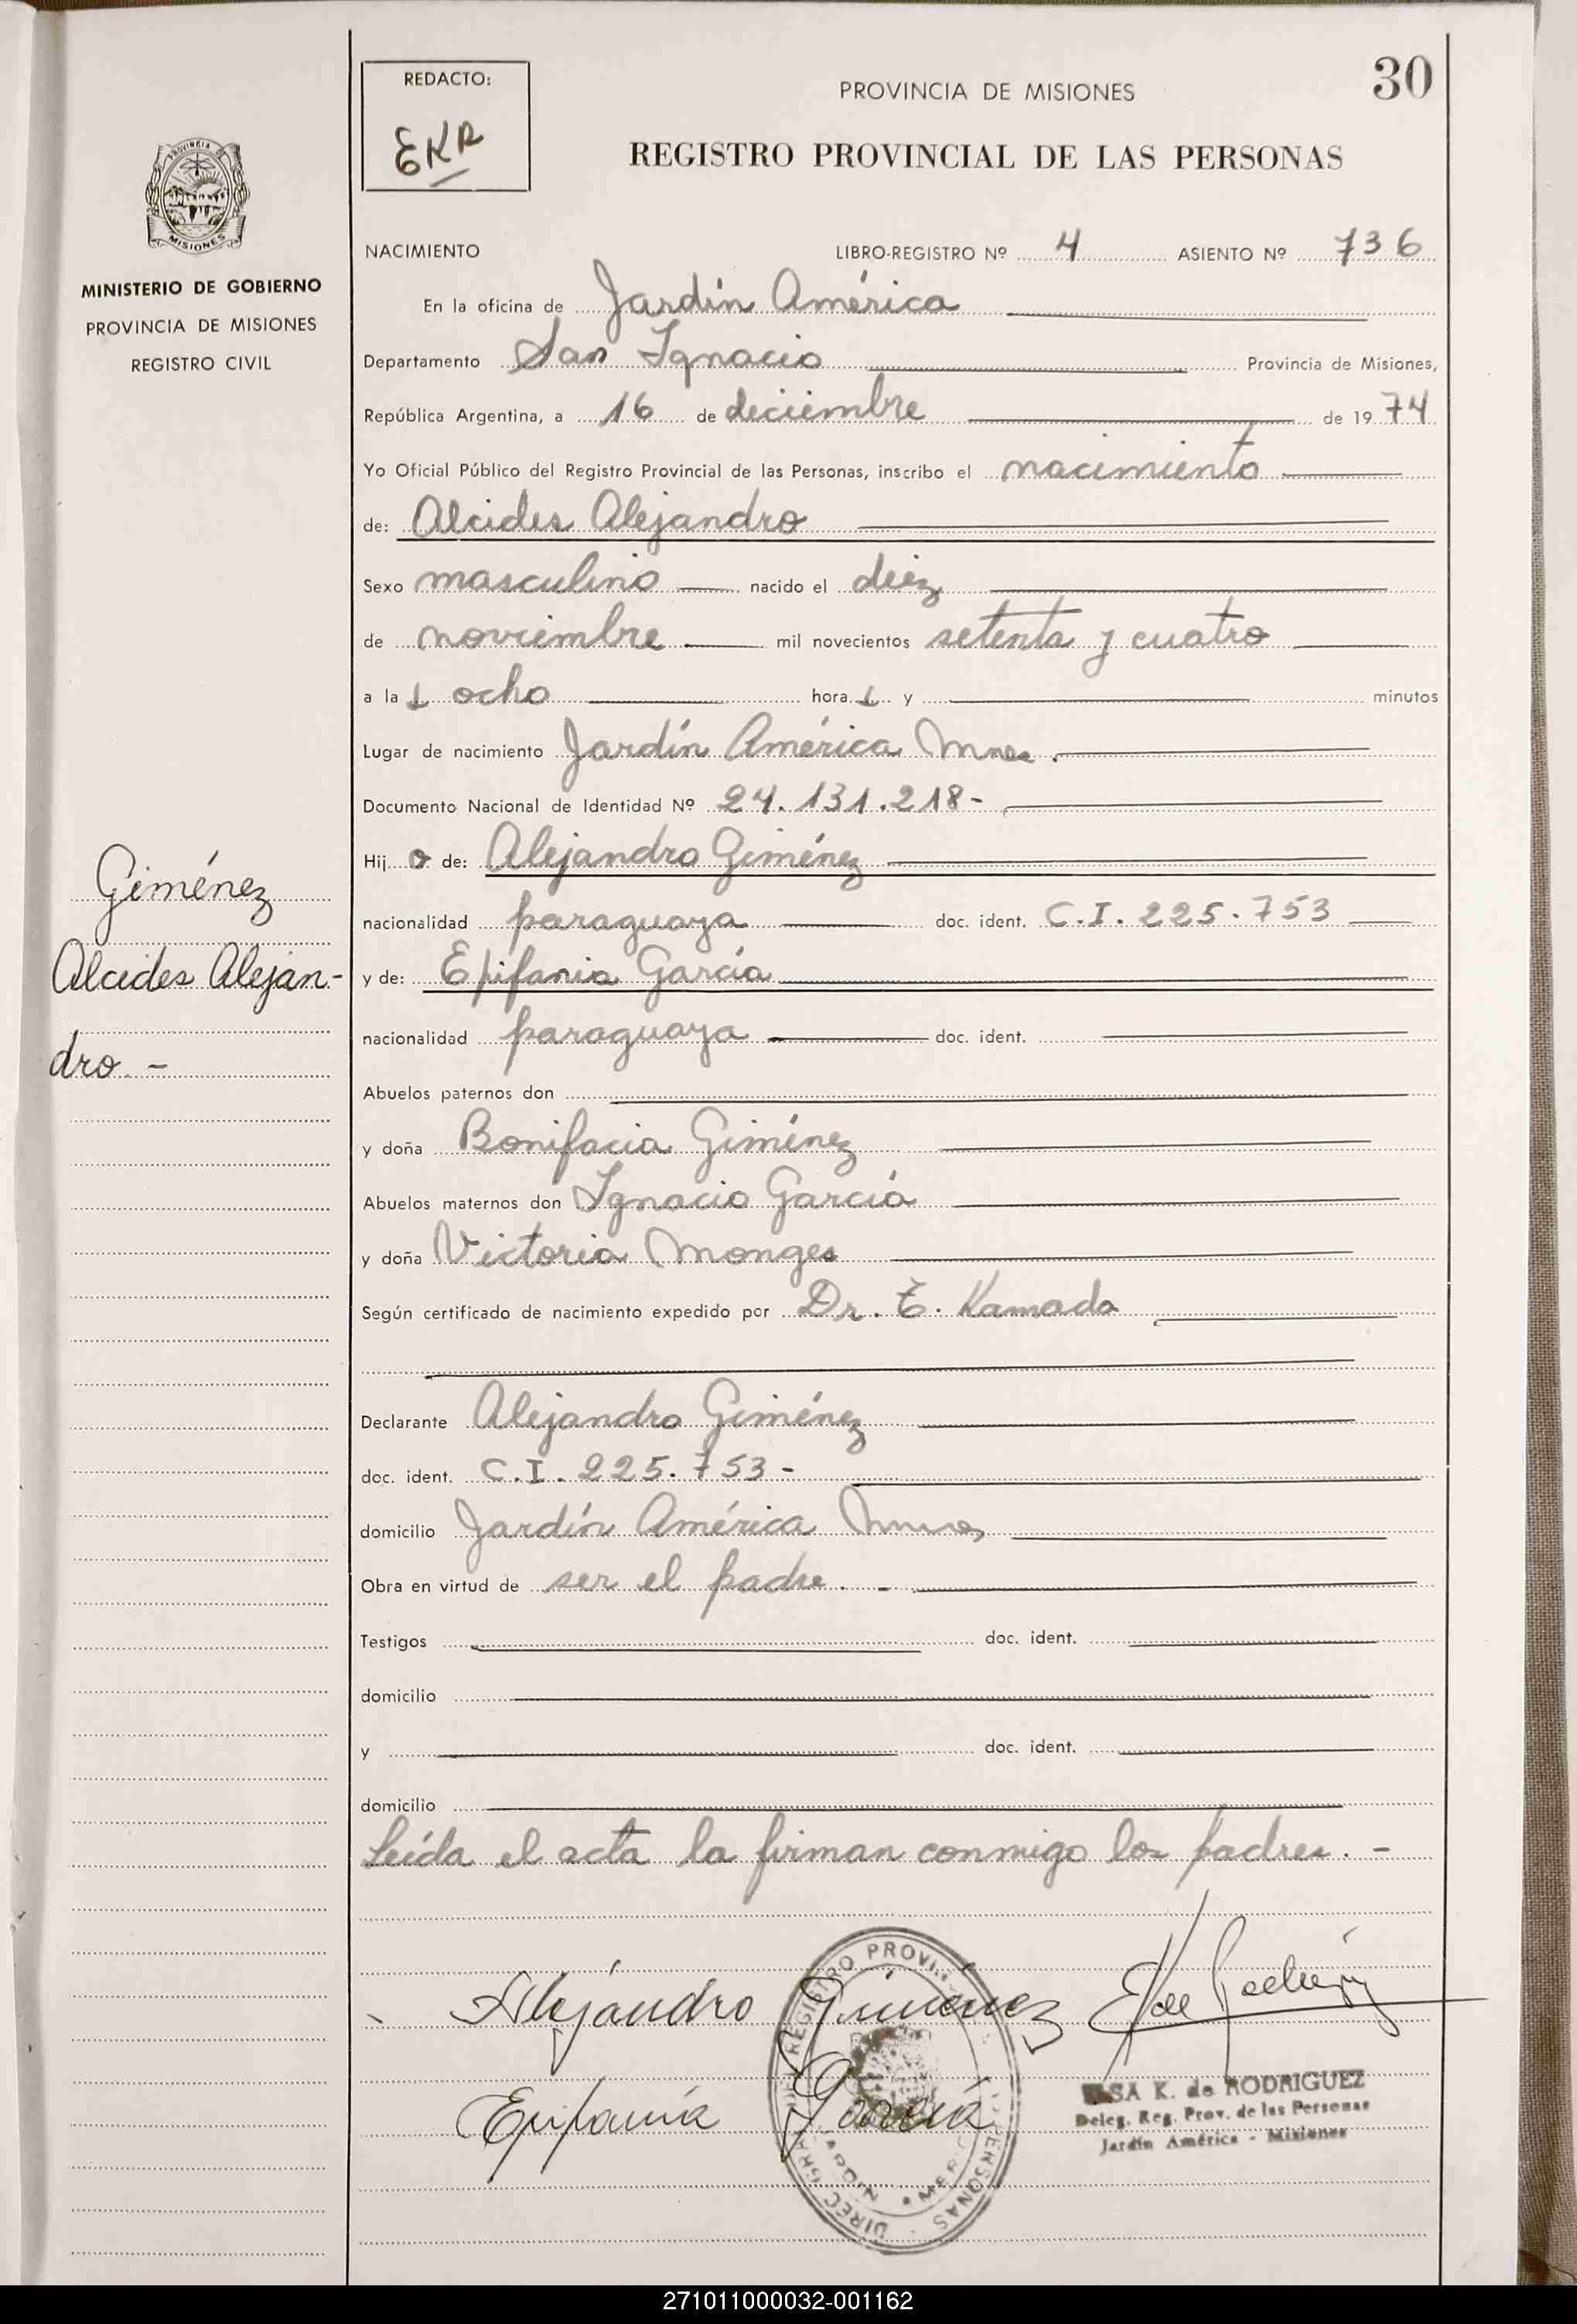 30
REDACTO:
EKR
PROVINCIA DE MISIONES
REGISTRO PROVINCIAL DE LAS PERSONAS
PROVINCIA DE
MISIONES
MINISTERIO DE GOBIERNO
PROVINCIA DE MISIONES
REGISTRO CIVIL
NACIMIENTO LIBRO-REGISTRO Nº 4 ASIENTO Nº 736
En la oficina de Jardín América
Departamento San Ignacio Provincia de Misiones,
República Argentina, a 16 de deciembre de 19 74
Yo Oficial Público del Registro Provincial de las Personas, inscribo el nacimiento
de: Alcides Alejandro
Sexo masculino nacido el diez
de noviembre mil novecientos setenta y cuatro
a la s ocho hora s y minutos
Lugar de nacimiento Jardín América Mnes.
Documento Nacional de Identidad Nº 24.131.218-
Hij o de: Alejandro Giménez
nacionalidad paraguaya doc. ident. C.I. 225.753
y de: Epifania García
nacionalidad paraguaya doc. ident.
Giménez
Alcides Alejan-
dro. -
Abuelos paternos don
y doña Bonifacia Giménez
Abuelos maternos don Ignacio García
y doña Victoria Monges
Según certificado de nacimiento expedido por Dr. T. Kamada
Declarante Alejandro Giménez
doc. ident. C.I. 225.753-
domicilio Jardín América Mnes
Obra en virtud de ser el padre. -
Testigos doc. ident.
domicilio
y doc. ident.
domicilio
Leída el acta la firman conmigo los padres. -
Alejándro Giménez
Epifanía García
REGISTRO PROVIN PERSONAS - DIREC GRAL
JARDIN AMERICA
ELSA K. de RODRIGUEZ
Deleg. Reg. Prov. de las Personas
Jardín América - Misiones
271011000032-001162